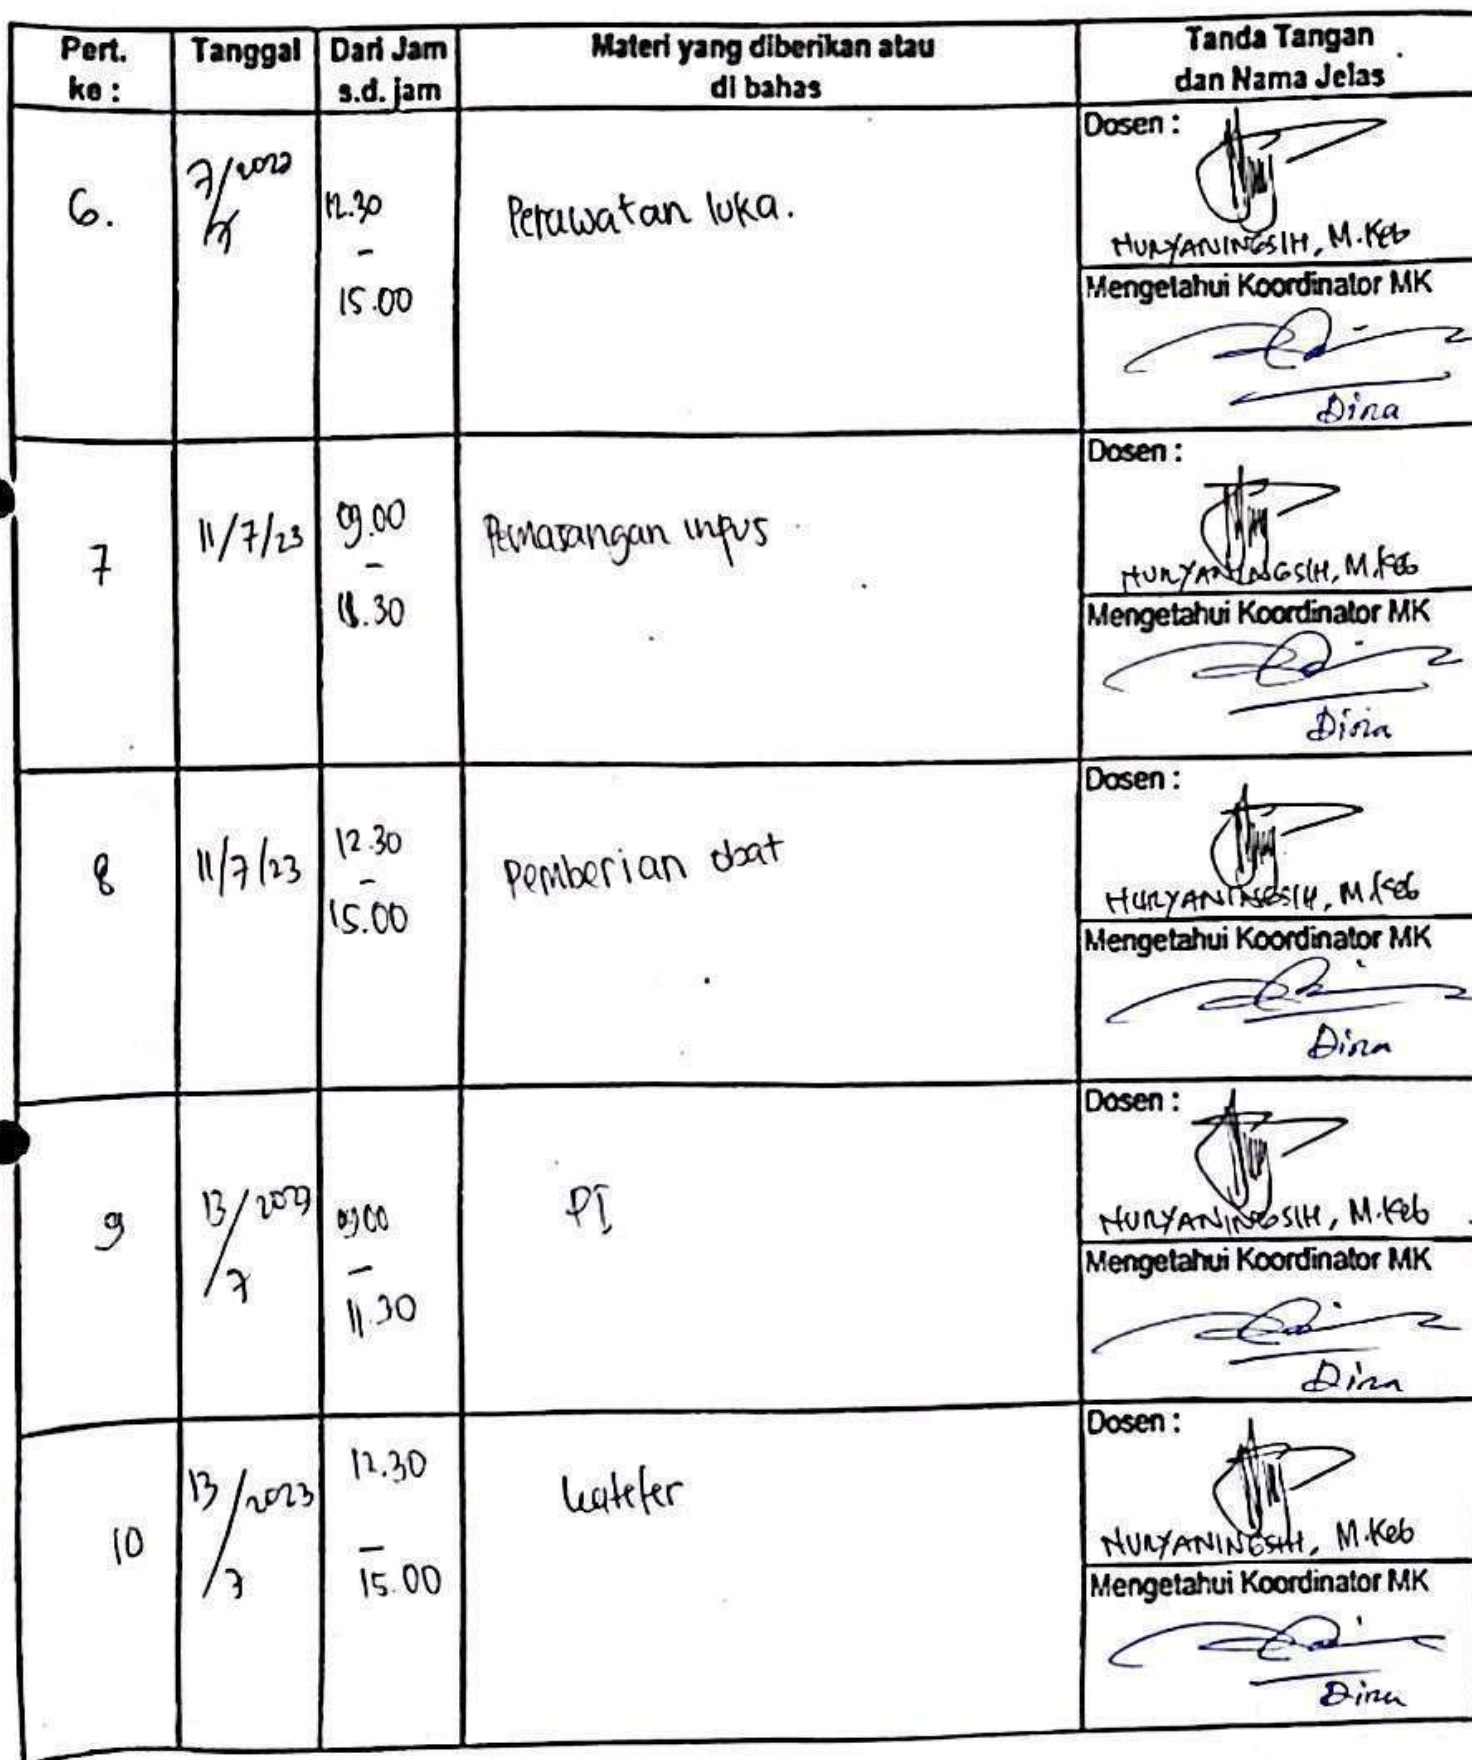 Pert. ke :
Tanggal
Dari Jam s.d. jam
Materi yang diberikan atau di bahas
Tanda Tangan dan Nama Jelas
6.
12.30
-
15.00
Perawatan luka.
Dosen :
NURYANINGSIH, M.Keb
Mengetahui Koordinator MK
Dina
7
11/7/23
09.00
-
11.30
Pemasangan infus
Dosen :
NURYANINGSIH, M.Keb
Mengetahui Koordinator MK
Dina
8
11/7/23
12.30
-
15.00
Pemberian obat
Dosen :
NURYANINGSIH, M.Keb
Mengetahui Koordinator MK
Dina
9
13/2023
/7
09.00
-
11.30
PI
Dosen :
NURYANINGSIH, M.Keb
Mengetahui Koordinator MK
Dina
10
13/2023
/7
12.30
-
15.00
kateter
Dosen :
NURYANINGSIH, M.Keb
Mengetahui Koordinator MK
Dina